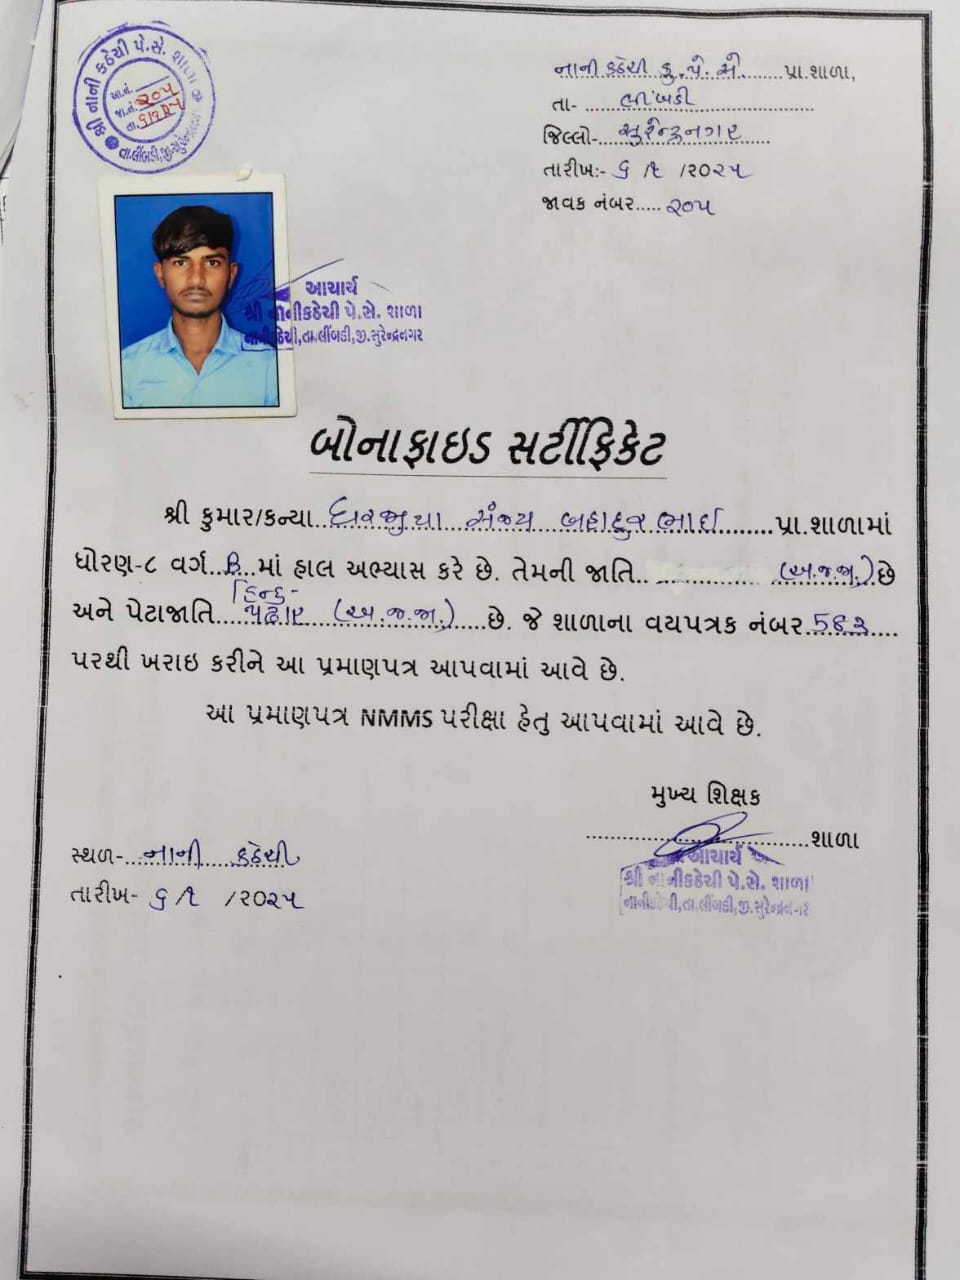 શ્રી નાની કઠેચી પે.સે. શાળા
આ.નં.
જા.નં. ૨૦૫
તા. ૬/૧/૨૫
તા.લીંબડી,જી.સુરેન્દ્રનગર
નાની કઠેચી કુ. પે. સે. ......પ્રા.શાળા,
તા- ...લીંબડી
જિલ્લો- સુરેન્દ્રનગર
તારીખ:- ૬ /૧ /૨૦૨૫
જાવક નંબર..... ૨૦૫
આચાર્ય
શ્રી નાનીકઠેચી પે.સે. શાળા
નાનીકઠેચી,તા.લીંબડી,જી.સુરેન્દ્રનગર
બોનાફાઇડ સર્ટીફિકેટ
શ્રી કુમાર/કન્યા.. સંજય બહાદુરભાઈ ......પ્રા.શાળામાં
ધોરણ-૮ વર્ગ..B..માં હાલ અભ્યાસ કરે છે. તેમની જાતિ (અ.જ.જા.) છે
હિન્દુ-
અને પેટાજાતિ....પઢાર (અ.જ.જા.)....છે. જે શાળાના વયપત્રક નંબર
પરથી ખરાઇ કરીને આ પ્રમાણપત્ર આપવામાં આવે છે.
આ પ્રમાણપત્ર NMMS પરીક્ષા હેતુ આપવામાં આવે છે.
મુખ્ય શિક્ષક
....................શાળા
આચાર્ય
શ્રી નાનીકઠેચી પે.સે. શાળા
નાનીકઠેચી,તા.લીંબડી,જી.સુરેન્દ્રનગર
સ્થળ-..નાની કઠેચી
તારીખ- ૬ /૧ /૨૦૨૫